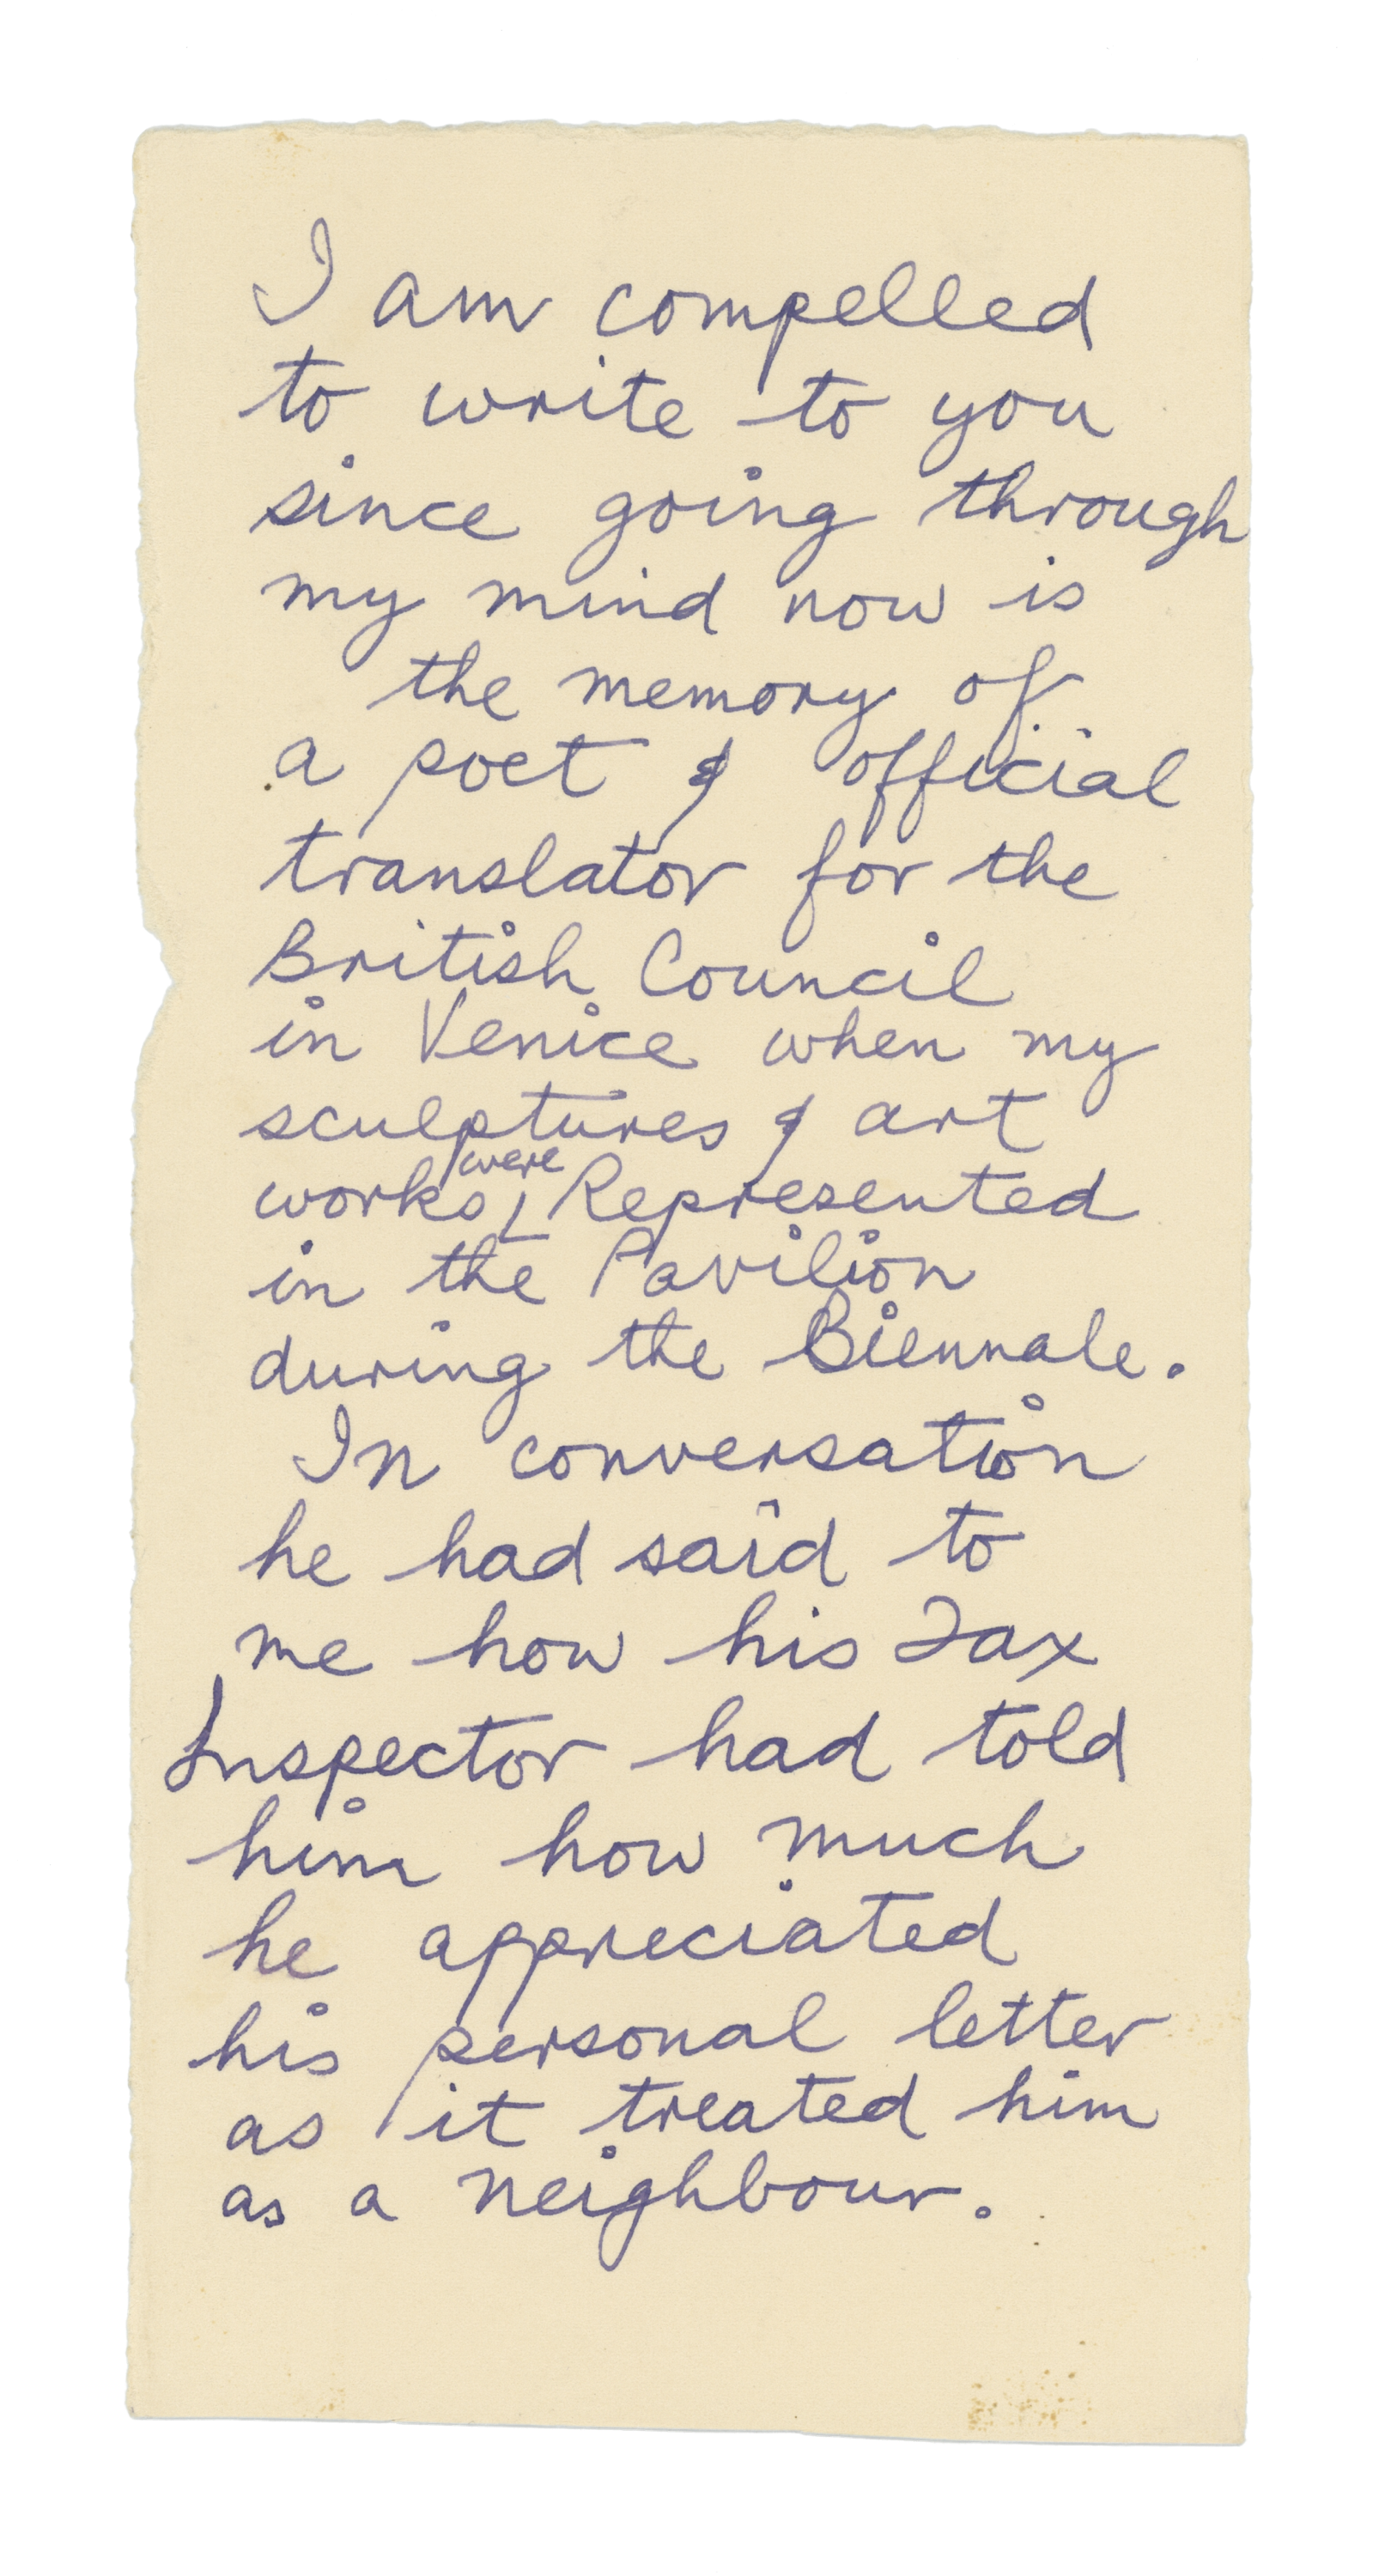 I am compelled
to write to you
since going through
my mind now is
the memory of
a poet & official
translator for the
British Council
in Venice when my
sculptures & art
works were Represented
in the Pavilion
during the Biennale.
In conversation
he had said to
me how his Tax
Inspector had told
him how much
he appreciated
his personal letter
as it treated him
as a neighbour.